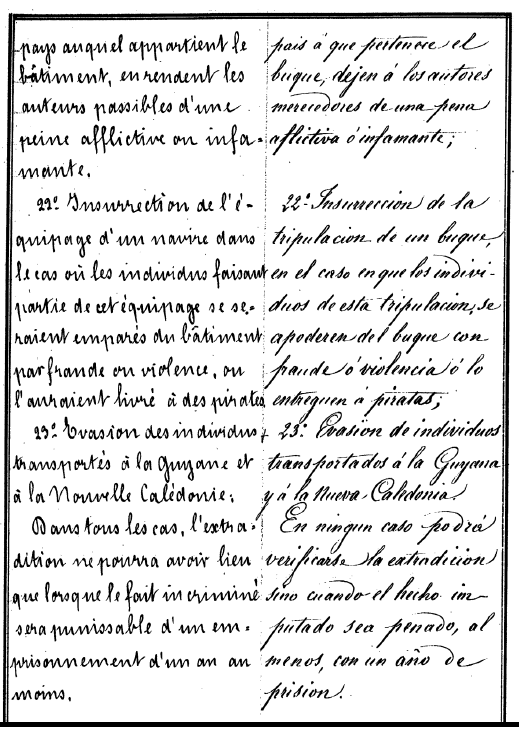 pays auquel appartient le
bâtiment, en rendent les
auteurs passibles d'une
peine afflictive ou infa-
mante.
22º Insurrection de l'é-
quipage d'un navire dans
le cas où les individus faisant
partie de cet équipage se se-
raient emparés du bâtiment
par fraude ou violence, ou
l'auraient livré à des pirates
23º Evasion des individus
transportés à la Guyane et
à la Nouvelle Calédonie;
Dans tous les cas, l'extra-
dition ne pourra avoir lieu
que lorsque le fait incriminé
sera punissable d'un em-
prisonnement d'un an au
moins.
pais á que pertenece el
buque, dejen á los autores
merecedores de una pena
aflictiva ó infamante;
22º Insurrección de la
tripulacion de un buque,
en el caso en que los indivi-
duos de esta tripulacion, se
apoderen del buque con
fraude ó violencia ó lo
entreguen á piratas;
23º Evasion de individuos
transportados á la Guyana
y á la Nueva Caledonia
En ningun caso podrá
verificarse la extradicion
sino cuando el hecho im-
putado sea penado, al
menos, con un año de
prision.